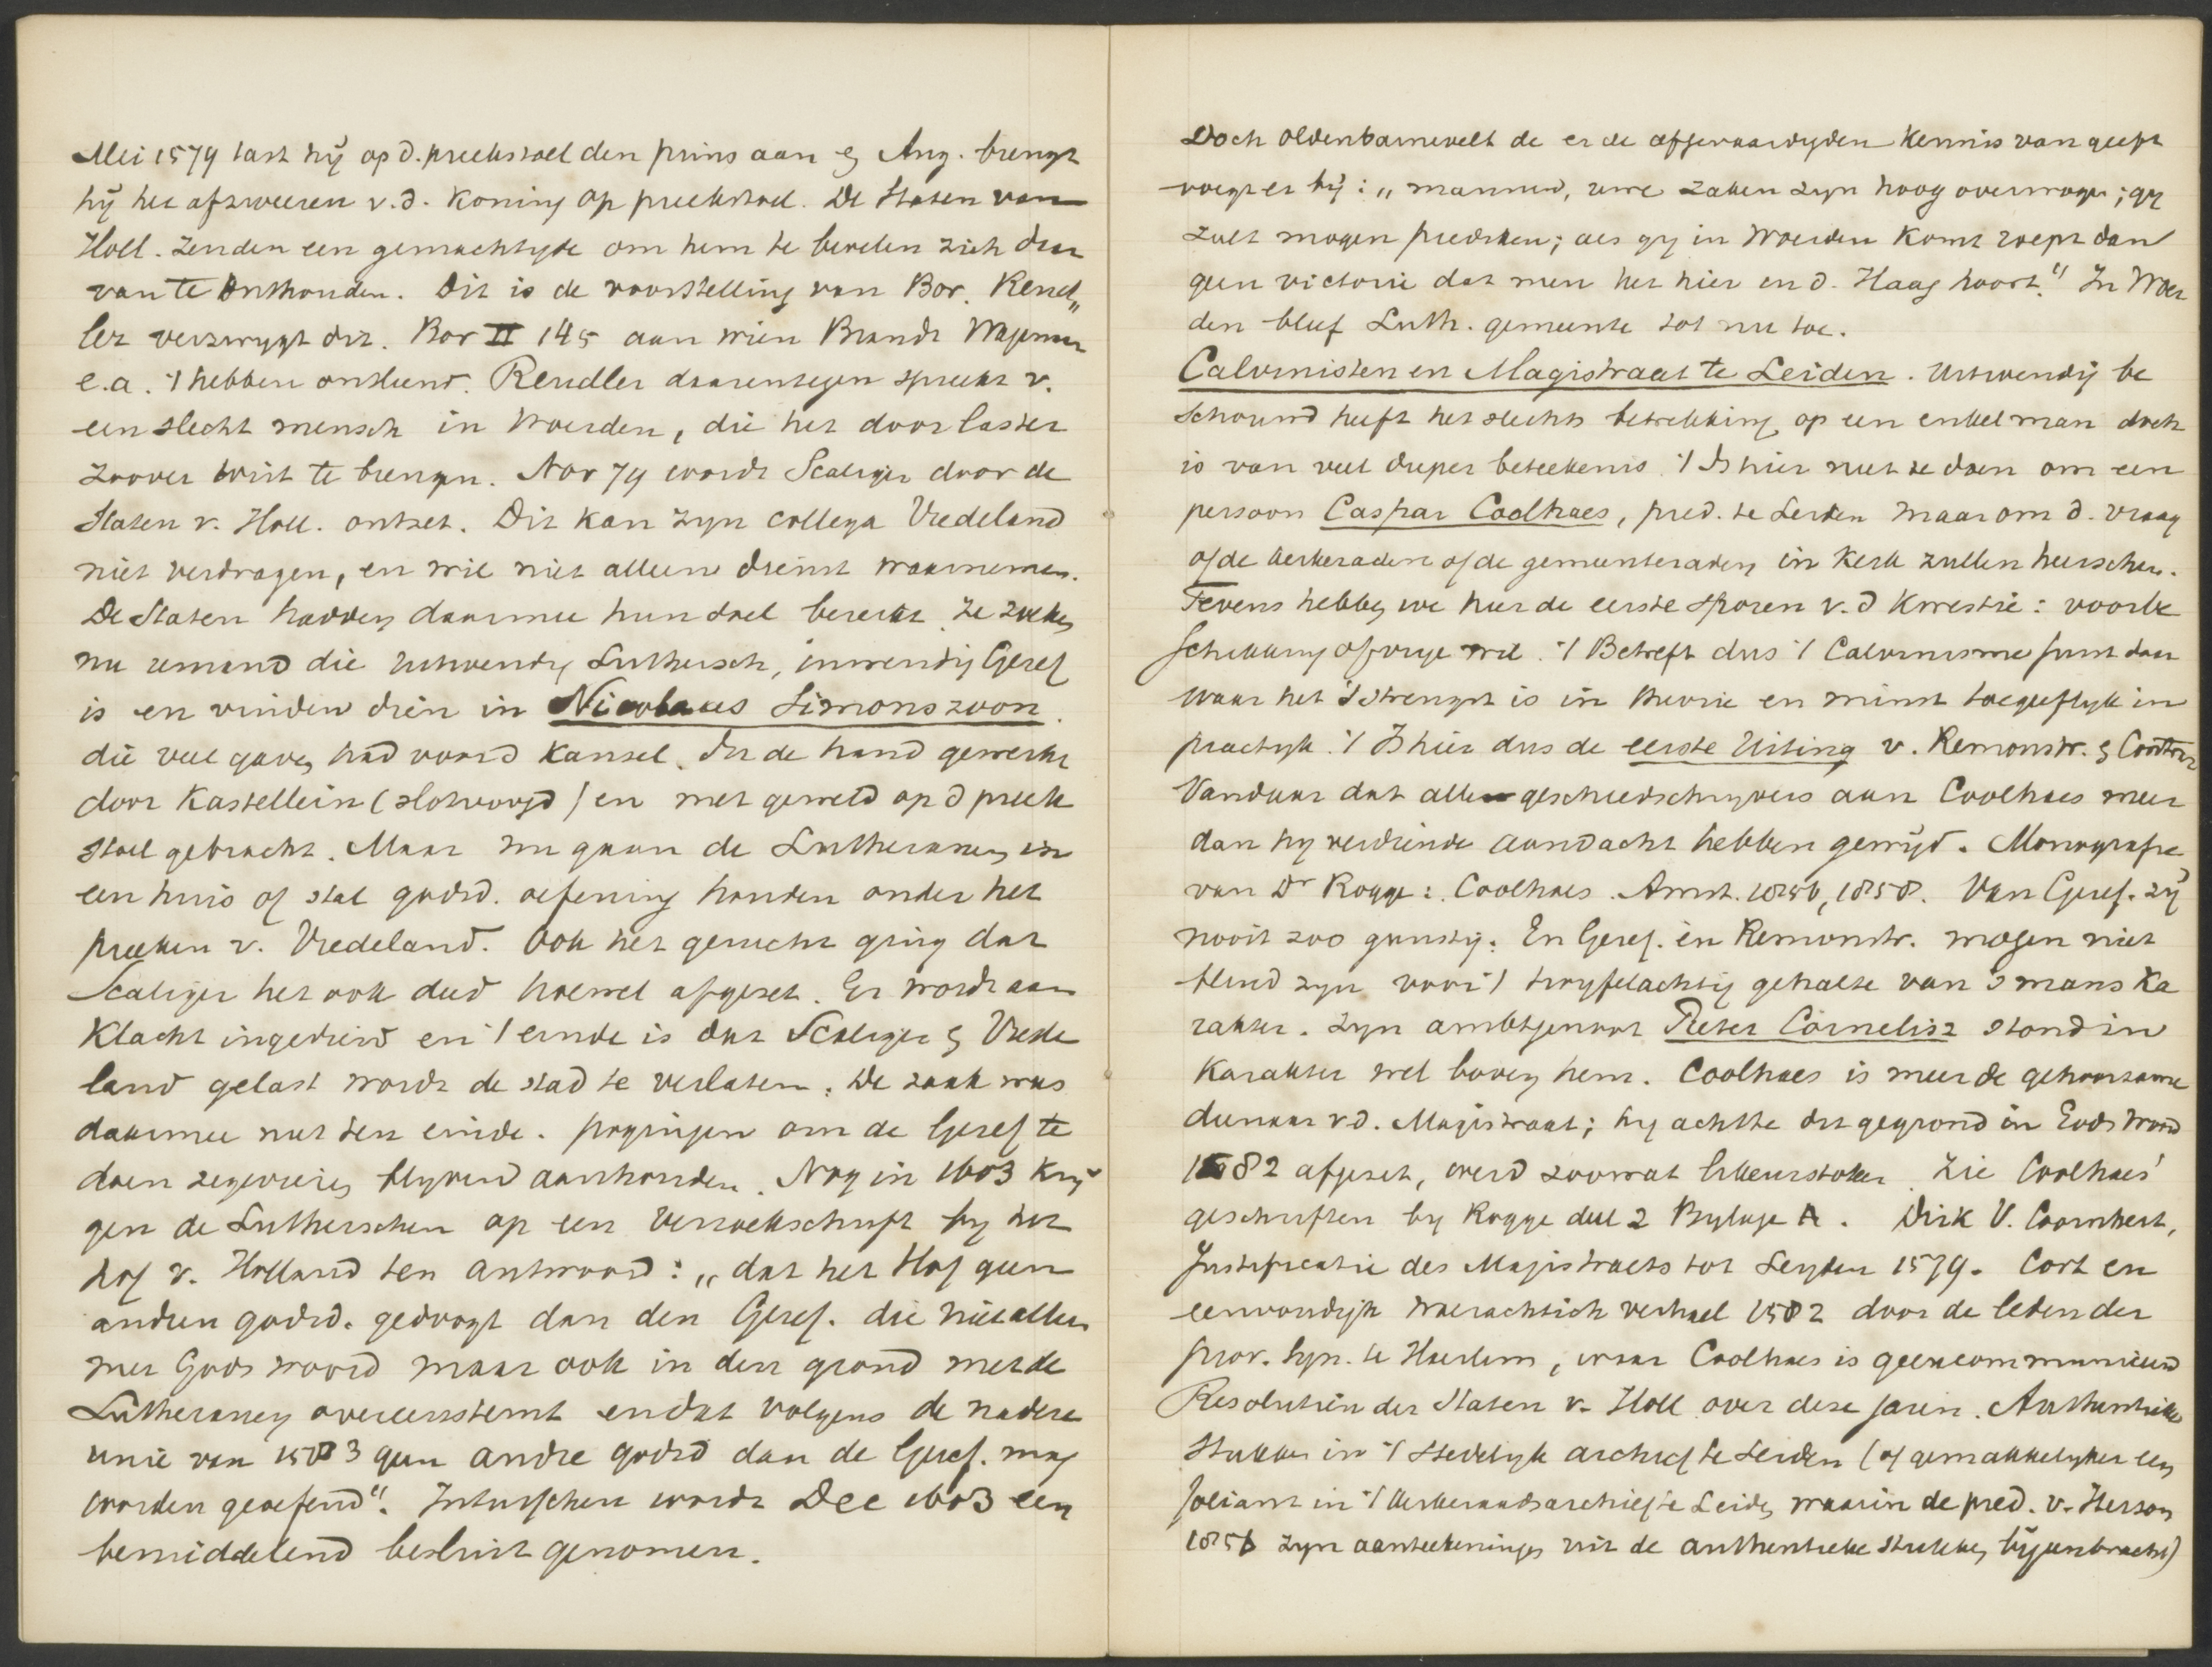 Mei 1579 tast hij op d. preekstoel den prins aan & Aug. brengt
hij het afzweeren v.d. Koning op preekstoel. De Staten van
Holl. zenden een gemachtigde om hem te bevelen zich daar
van te onthouden. Dit is de voorstelling van Bor. Rend„
ler verzwygt dit. Bor II 145 aan wien Brandt Wagenaar
e.a. 't hebben ontleend. Rendler daarentegen spreekt v.
een slecht mensch in Woerden, die het door laster
zoover wist te brengen. Nov 79 wordt Scaliger door de
Staten v. Holl. ontzet. Dit kan zyn collega Vredeland
niet verdragen, en wil niet alleen dienst waarnemen.
De Staten hadden daarmee hun doel bereikt. Ze zoeken
nu iemand die uitwendig Luthersch, inwendig Geref
is en vinden dien in Nicolaus Simonszoon.
die veel gaven had voor d Kansel. In de hand gewerkt
door Kastellein (slotvoogd) en met geweld op d preek
stoel gebracht. Maar nu gaan de Lutheranen in
een huis of stal godsd. oefening houden onder het
preeken v. Vredeland. Ook het gerucht ging dat
Scaliger het ook deed hoewel afgezet. Er wordt aan
Klacht ingediend en 't einde is dat Scaliger & Vrede
land gelast wordt de stad te verlaten. De zaak was
daarmee niet ten einde. pogingen om de Geref te
doen zegevieren blyven aanhouden. Nog in 1603 krij
gen de Lutherschen op een verzoekschrift by het
hof v. Holland ten antwoord: „dat het Hof geen
andren godsd. gedoogt dan den Geref. die niet alleen
met Gods woord maar ook in den grond met de
Lutheranen overeenstemt en dat volgens de nadere
unie van 1583 geen andre godsd dan de Geref. mag
worden geoefend". Intusschen wordt Dec 1603 een
bemiddelend besluit genomen.
Doch Oldenbarnevelt de er de afgevaardigden kennis van geeft
voegt er bij: „mannen, uwe zaken zyn hoog overwogen; gy
zult mogen prediken; als gy in Woerden komt roept dan
geen victorie dat men het hier in d. Haag hoort." In Woer
den bleef Luth. gemeente tot nu toe.
Calvinisten en Magistraat te Leiden. Uitwendij be
schouwd heeft het slechts betrekking op een enkel man doch
is van veel dieper beteekenis. 't Is hier niet te doen om een
persoon Caspar Coolhaes, pred. te Leiden maar om d. vraag
of de kerkeraden of de gemeenteraden in Kerk zullen heerschen.
Tevens hebben we hier de eerste sporen v.d Kwestie: voorbe
schikking of vrije wil. 't Betreft dus 't Calvinisme juist daar
waar het 't strengst is in theorie en minst toegeeflyk in
practyk. 't Is hier dus de eerste Uiting v. Remonstr. & Contrar
Vandaar dat alle geschiedschrijvers aan Coolhaes meer
dan hy verdiende aandacht hebben gewijd. Monografie
van Dr Rogge: Coolhaes. Amst. 1856, 1858. Van Geref. zij
nooit zoo gunstij. En Geref. en Remonstr. mogen niet
blind zyn voor 't twyfelachtig gehalte van 's mans Ka
rakter. Zyn ambtgenoot Pieter Cornelisz stond in
Karakter wel boven hem. Coolhaes is meer de gehoorzame
dienaar v d. Magistraat; hy achtte dit gegrond in Gods Woord
1582 afgezet, werd zoowat likeurstoker. Zie Coolhaes'
geschriften by Rogge deel 2 Bylage A. Dirk V. Coornhert,
Justificatie des Magistraets tot Leyden 1579. Cort en
eenvoudigh waerachtich verhael 1582 door de leden der
prov. Syn. te Haarlem, waar Coolhaes is geexcommuniceerd
Resolutiën der Staten v. Holl. over deze jaren. Authentieke
Stukken in 't Stedelyk archief te Leiden (of gemakkelyker een
foliant in 't Kerkeraadsarchief te Leiden waarin de pred. v. Herson
1856 zyn aanteekeningen uit de authentieke stukken bijeenbracht)